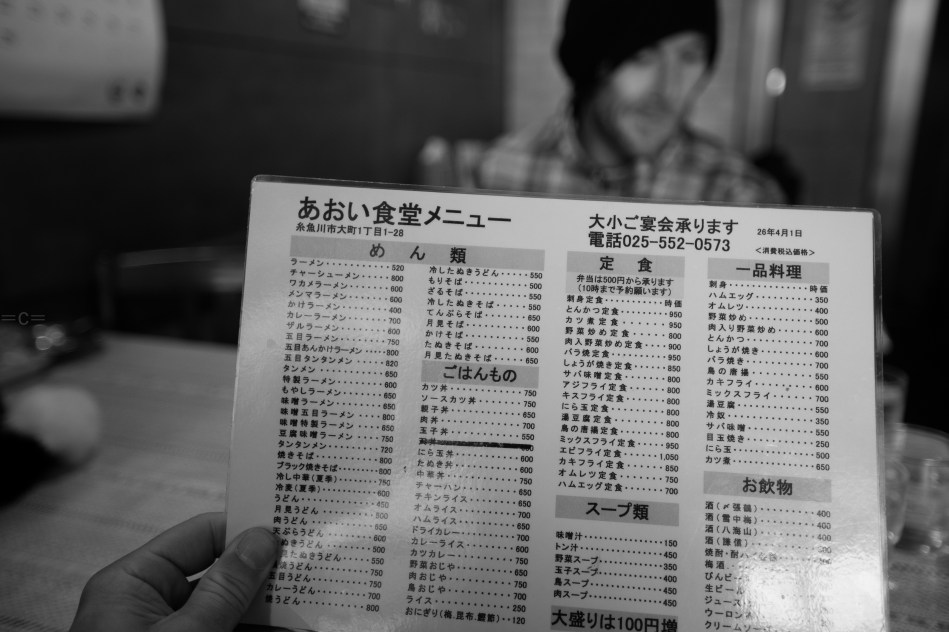 あおい食堂メニュー
糸魚川市大町1丁目1-28
大小ご宴会承ります
電話025-552-0573
26年4月1日
<消費税込価格>
めん類
ラーメン・・・・・・・・・・520
チャーシューメン・・・・・800
ワカメラーメン・・・・・・600
メンマラーメン・・・・・・600
かけラーメン・・・・・・・400
カレーラーメン・・・・・・700
ザルラーメン・・・・・・・600
五目ラーメン・・・・・・・750
五目あんかけラーメン・・・800
五目タンタンメン・・・・・820
タンメン・・・・・・・・・650
特製ラーメン・・・・・・・600
もやしラーメン・・・・・・650
味噌ラーメン・・・・・・・600
味噌五目ラーメン・・・・・800
味噌特製ラーメン・・・・・750
豆腐味噌ラーメン・・・・・750
タンタンメン・・・・・・・720
焼きそば・・・・・・・・・600
ブラック焼きそば・・・・・800
冷し中華(夏季)・・・・・750
冷麦(夏季)・・・・・・・600
うどん・・・・・・・・・・450
月見うどん・・・・・・・・500
肉うどん・・・・・・・・・650
天ぷらうどん・・・・・・・600
ぬきうどん・・・・・・・・500
見たぬきうどん・・・・・・550
うどん・・・・・・・・・・750
五目うどん・・・・・・・・750
カレーうどん・・・・・・・700
うどん・・・・・・・・・・800
冷したぬきうどん・・・・・550
もりそば・・・・・・・・・500
ざるそば・・・・・・・・・550
冷したぬきそば・・・・・・550
てんぷらそば・・・・・・・650
月見そば・・・・・・・・・500
かけそば・・・・・・・・・450
たぬきそば・・・・・・・・500
月見たぬきそば・・・・・・550
ごはんもの
カツ丼・・・・・・・・・・750
ソースカツ丼・・・・・・・750
親子丼・・・・・・・・・・700
肉丼・・・・・・・・・・・700
玉子丼・・・・・・・・・・550
にら玉丼・・・・・・・・・600
たぬき丼・・・・・・・・・500
中華丼・・・・・・・・・・750
チャーハン・・・・・・・・600
チキンライス・・・・・・・600
オムライス・・・・・・・・700
ハムライス・・・・・・・・600
ドライカレー・・・・・・・700
カレーライス・・・・・・・600
カツカレー・・・・・・・・800
野菜おじや・・・・・・・・700
肉おじや・・・・・・・・・750
鳥おじや・・・・・・・・・700
ライス・・・・・・・・・・250
おにぎり(梅.昆布.鰹節)・・120
定食
弁当は500円から承ります
(10時まで予約願います)
刺身定食・・・・・・・・・時価
とんかつ定食・・・・・・・950
カツ煮定食・・・・・・・・950
野菜炒め定食・・・・・・・800
肉入野菜炒め定食・・・・・900
バラ焼定食・・・・・・・・950
しょうが焼き定食・・・・・850
サバ味噌定食・・・・・・・800
アジフライ定食・・・・・・800
キスフライ定食・・・・・・800
にら玉定食・・・・・・・・800
湯豆腐定食・・・・・・・・800
鳥の唐揚定食・・・・・・・800
ミックスフライ定食・・・・950
エビフライ定食・・・・・・1,050
カキフライ定食・・・・・・850
オムレツ定食・・・・・・・750
ハムエッグ定食・・・・・・700
スープ類
味噌汁・・・・・・・・・・150
トン汁・・・・・・・・・・450
野菜スープ・・・・・・・・350
玉子スープ・・・・・・・・400
鳥スープ・・・・・・・・・450
肉スープ・・・・・・・・・450
大盛りは100円増
一品料理
刺身・・・・・・・・・・・時価
ハムエッグ・・・・・・・・350
オムレツ・・・・・・・・・400
野菜炒め・・・・・・・・・500
肉入り野菜炒め・・・・・・600
とんかつ・・・・・・・・・700
しょうが焼き・・・・・・・600
バラ焼き・・・・・・・・・700
鳥の唐揚・・・・・・・・・550
カキフライ・・・・・・・・600
ミックスフライ・・・・・・700
湯豆腐・・・・・・・・・・550
冷奴・・・・・・・・・・・300
サバ味噌・・・・・・・・・550
目玉焼き・・・・・・・・・250
にら玉・・・・・・・・・・500
カツ煮・・・・・・・・・・650
お飲物
酒(〆張鶴)・・・・・・・400
酒(雪中梅)・・・・・・・400
酒(八海山)・・・・・・・400
酒(謙信)
焼酎・酎ハイ
梅酒
びんビ
生ビー
ジュース
ウーロン
クリームソー